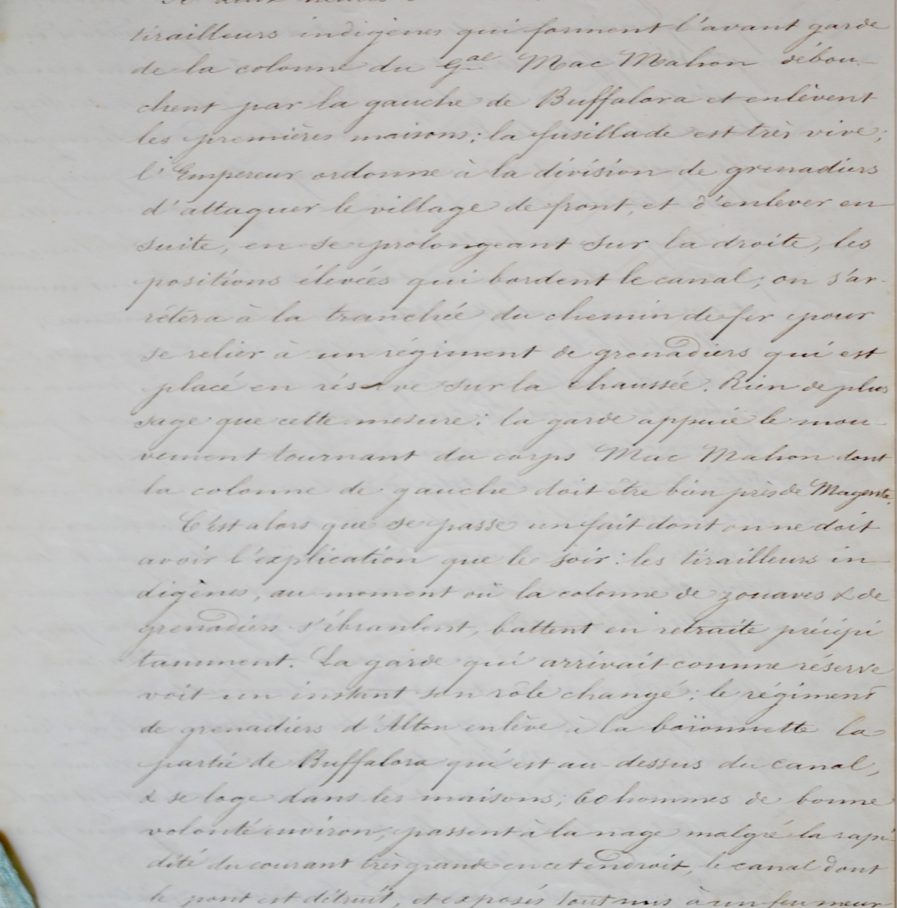 tirailleurs indigènes qui forment l'avant garde
de la colonne du Gal Mac Mahon débou-
chent par la gauche de Buffalora et enlèvent
les premières maisons ; la fusillade est très vive ;
l'Empereur ordonne à la division de grenadiers
d'attaquer le village de front, et d'enlever en
suite, en se prolongeant sur la droite, les
positions élevées qui bordent le canal ; on s'ar-
rêtera à la tranchée du chemin de fer pour
se relier à un régiment de grenadiers qui est
placé en réserve sur la chaussée. Rien de plus
sage que cette mesure : la garde appuie le mou-
vement tournant du corps Mac Mahon dont
la colonne de gauche doit être bien près de Magenta.
C'est alors que se passe un fait dont on ne doit
avoir l'explication que le soir : les tirailleurs in-
digènes, au moment où la colonne de zouaves & de
grenadiers s'ébranlent, battent en retraite précipi
tamment. La garde qui arrivait comme réserve
voit un instant son rôle changé : le régiment
de grenadiers d'Alton enlève à la baïonnette la
partie de Buffalora qui est au-dessus du canal,
& se loge dans les maisons ; 60 hommes de bonne
volonté environ, passent à la nage malgré la rapi-
dité du courant très grande en cet endroit, le canal dont
le pont est détruit, et exposés tout nus à un feu meur